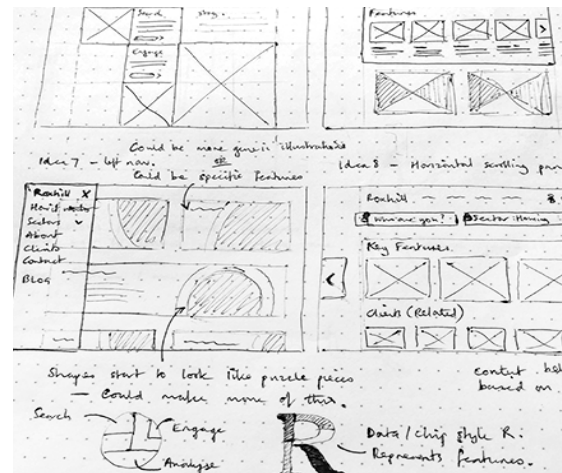 Search
Story.
Engage
Features
Could be more generic illustrations
Idea 7 - left nav.
OR
Could be specific features
Idea 8 - Horizontal scrolling
Roxhill X
Sectors
About
Clients
Contact
BLOG
Roxhill
Who are you?
Sector: Housing
Key Features
Clients (Related)
Shapes start to look like puzzle pieces
- Could make more of this.
content
based on
Search
Engage
Analyse
R
Data/chip style R.
Represents features.